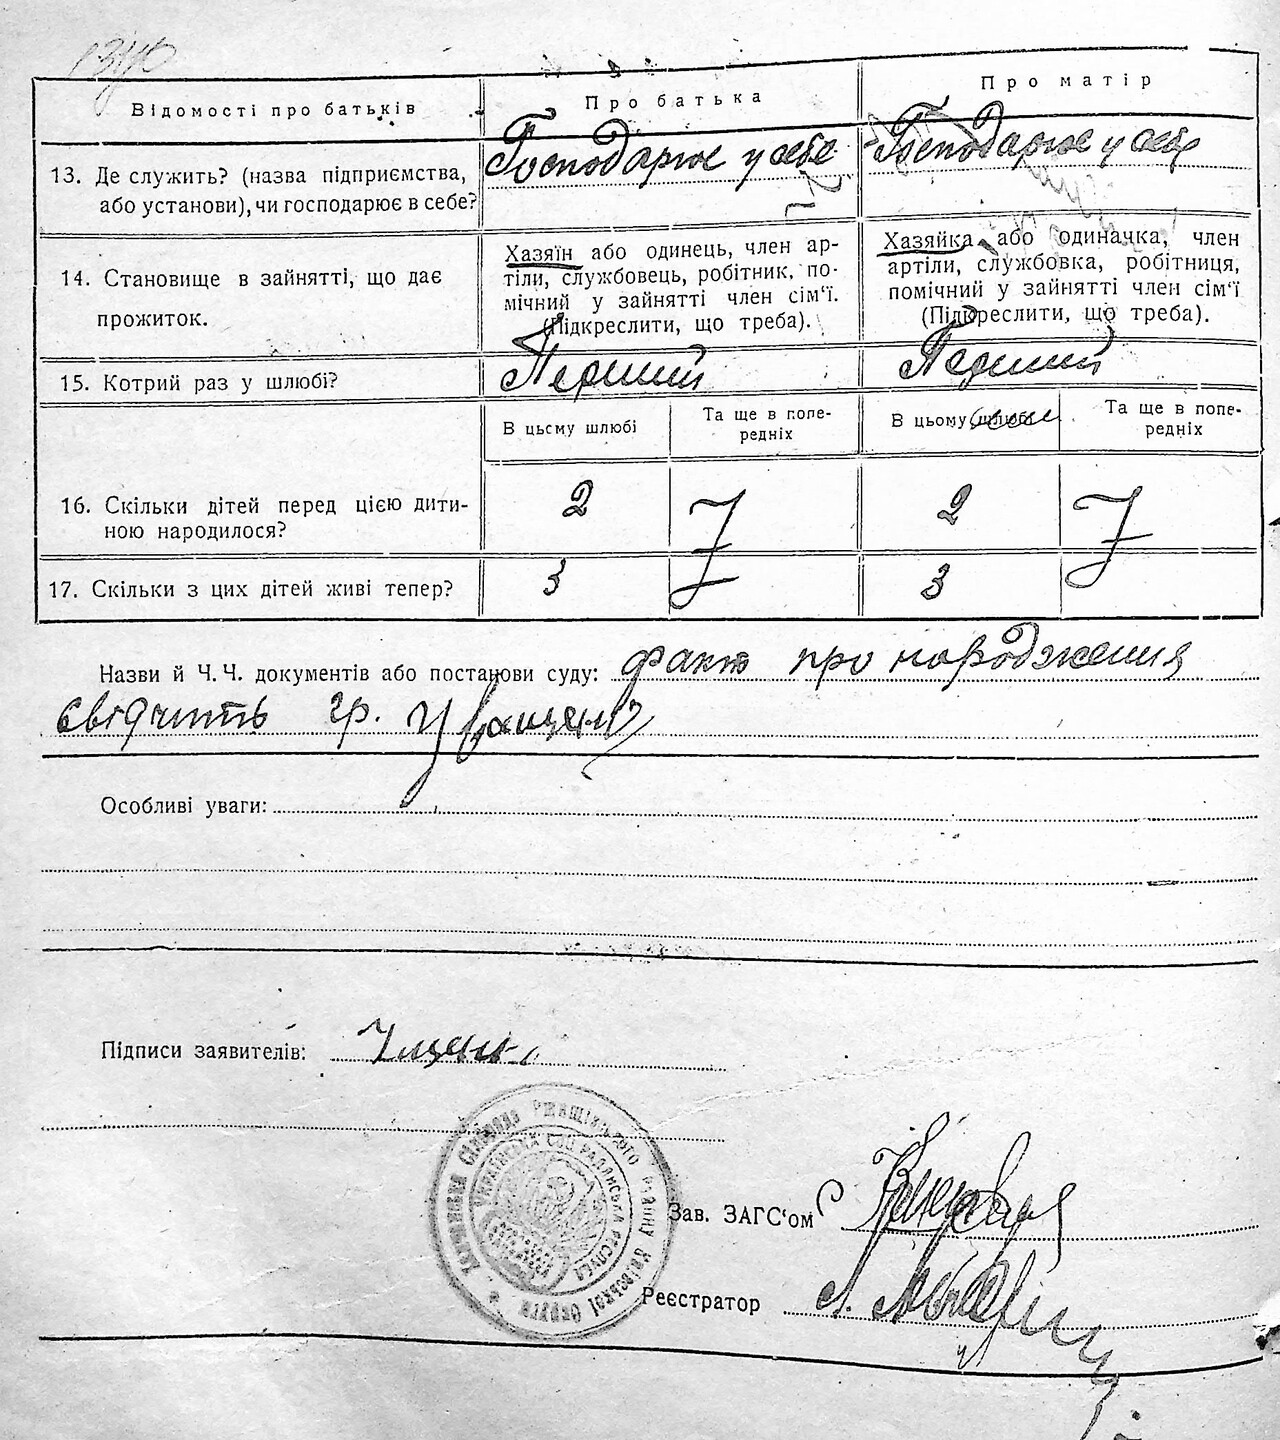 Відомості про батьків
Про батька
Про матір
13. Де служить? (назва підприємства,
або установи), чи господарює в себе?
Господарює у себе
Господарює у себе
14. Становище в зайнятті, що дає
прожиток.
Хазяїн або одинець, член ар-
тіли, службовець, робітник, по-
мічний у зайнятті член сім'ї.
(Підкреслити, що треба).
Хазяйка або одиначка, член
артіли, службовка, робітниця,
помічний у зайнятті член сім'ї
(Підкреслити, що треба).
15. Котрий раз у шлюбі?
Перший
Перший
В цьому шлюбі
Та ще в попе-
редніх
В цьому шлюбі
Та ще в попе-
редніх
16. Скільки дітей перед цією дити-
ною народилося?
2
2
17. Скільки з цих дітей живі тепер?
3
3
Назви й Ч. Ч. документів або постанови суду: факт про народження
свідчить гр.
Особливі уваги:
Підписи заявителів:
Сільрада Ржищівського району Київської Округи
УКРАЇНСЬКА СОЦ РАДЯНСЬКА
Зав. ЗАГС'ом
Реєстратор